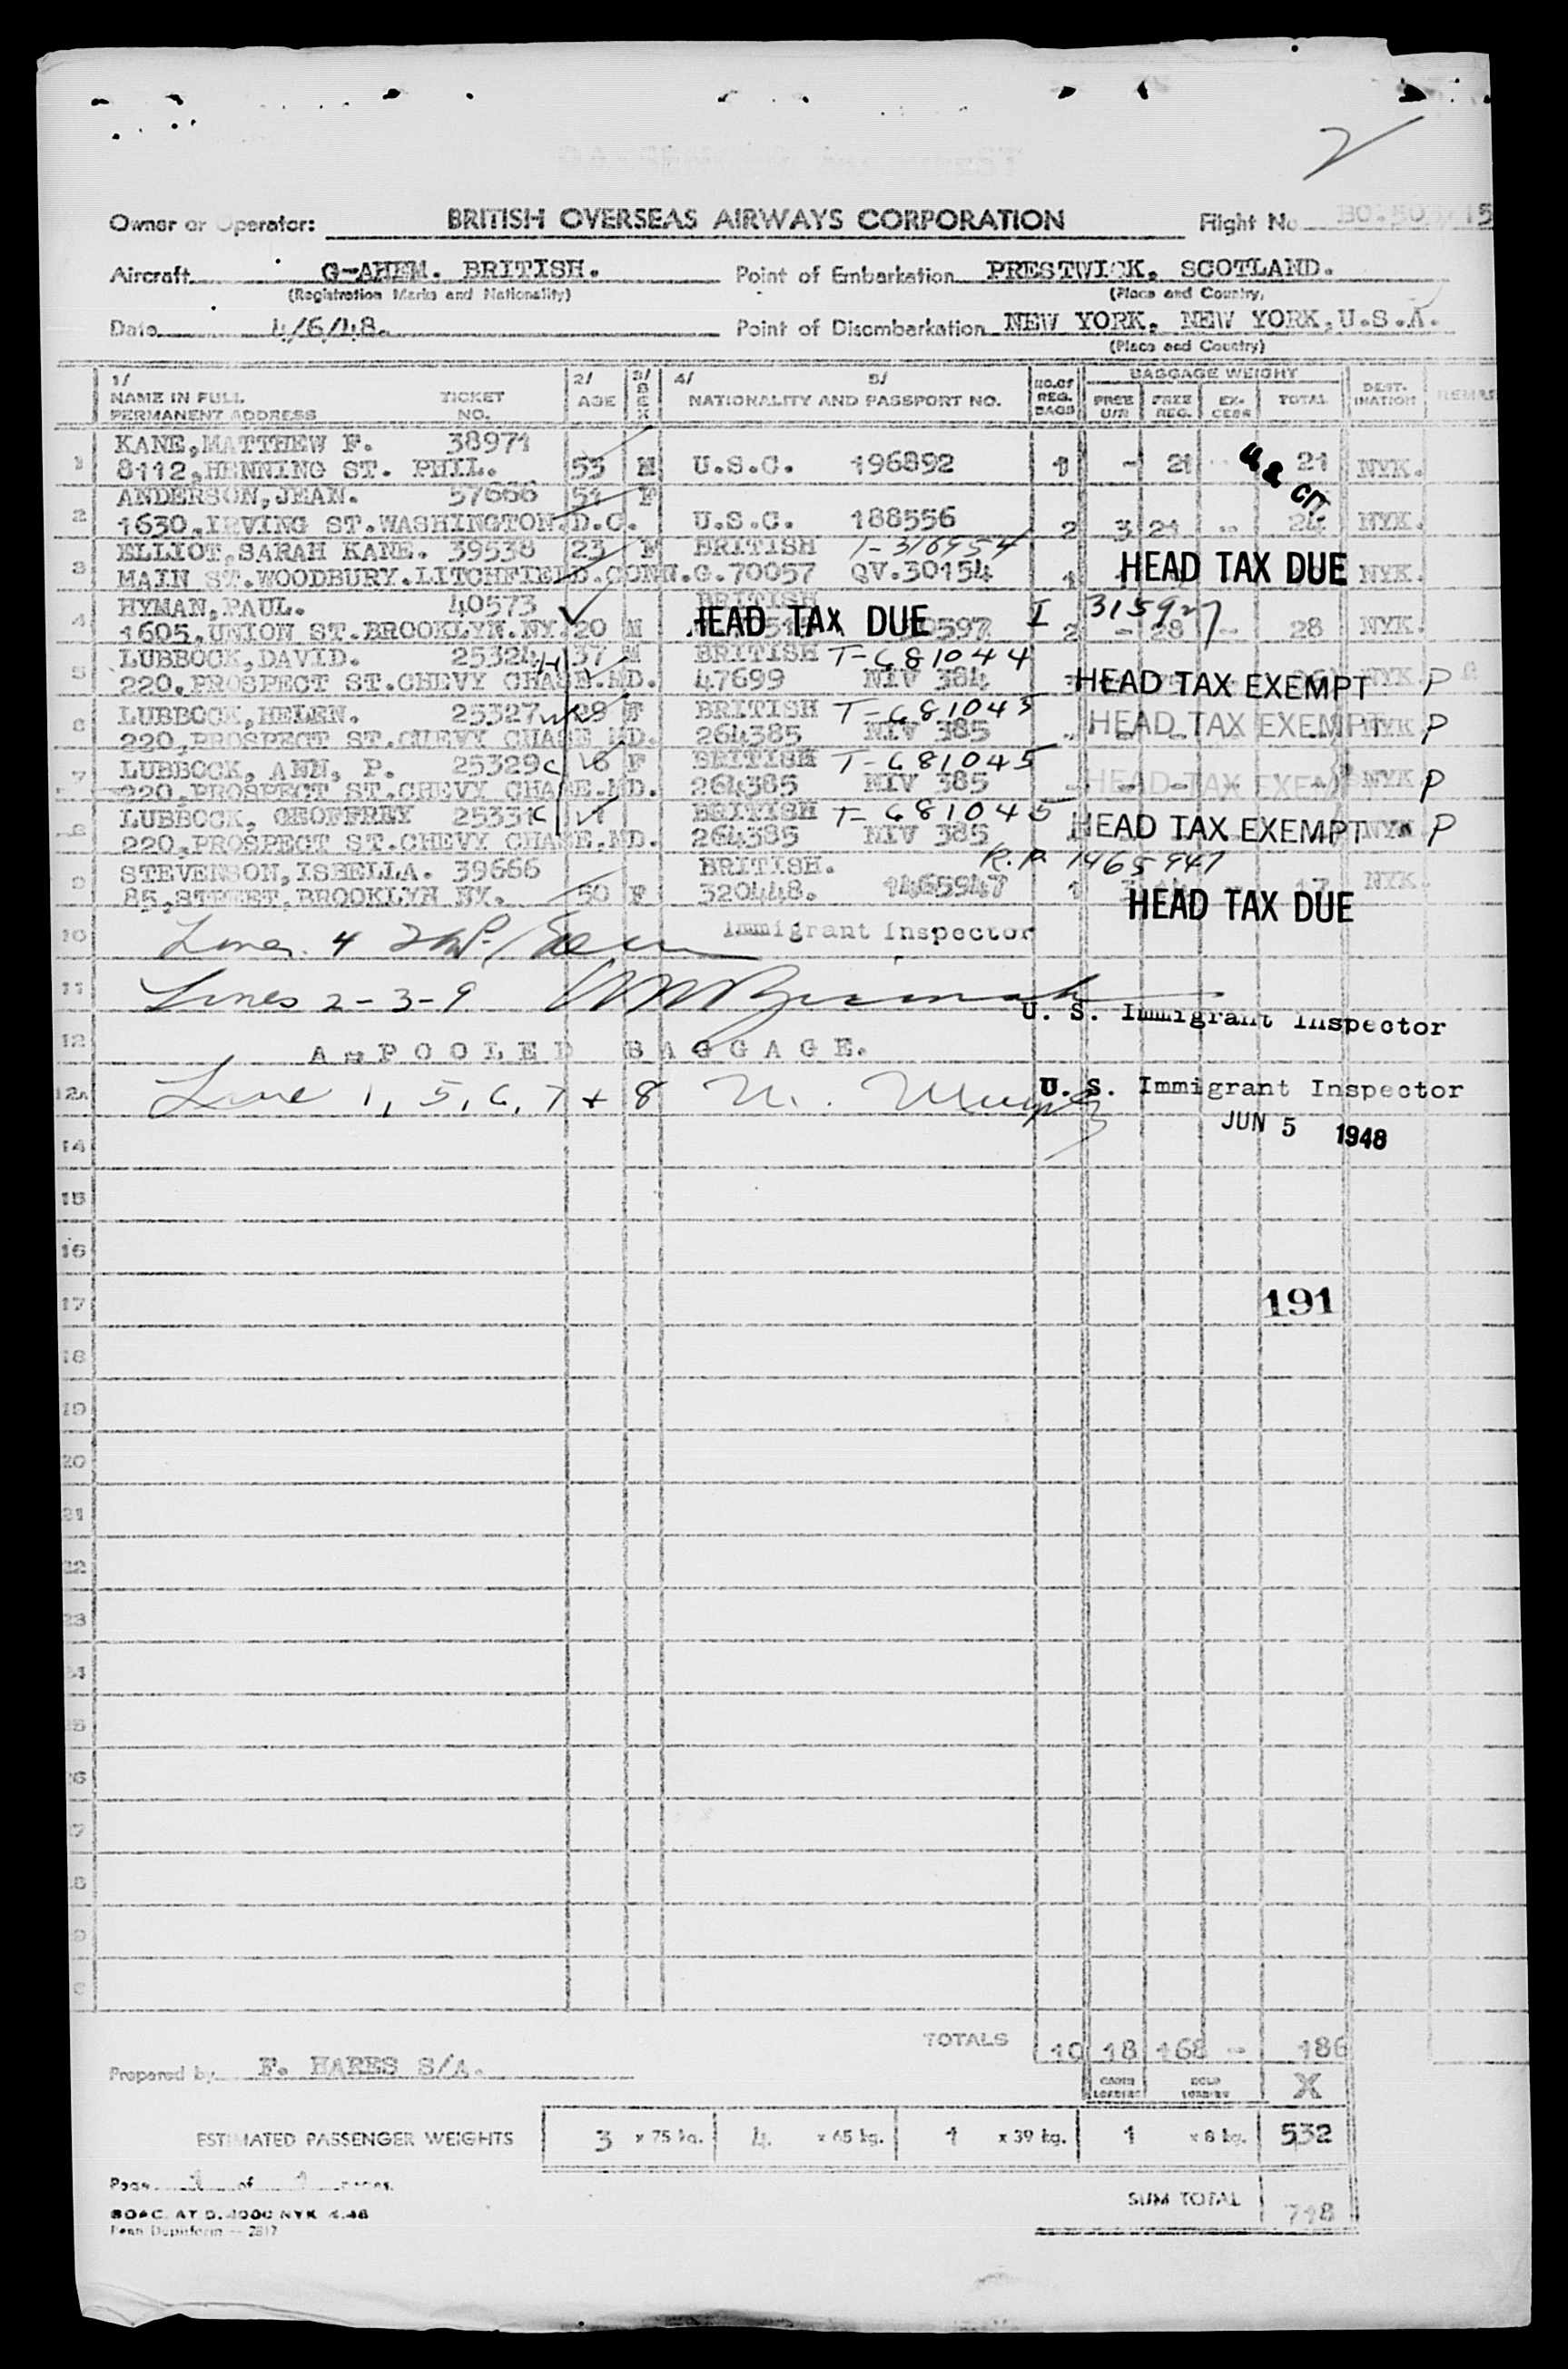 2
Owner or Operator: BRITISH OVERSEAS AIRWAYS CORPORATION Flight No
Aircraft G-AHEM. BRITISH. Point of Embarkation PRESTWICK, SCOTLAND.
(Registration Marks and Nationality) (Place and Country,
Date 4/6/48. Point of Disembarkation NEW YORK, NEW YORK, U.S.A.
(Place and Country)
1/ 2/ 3/ 4/ 5/ NO. OF REG. BAGS BAGGAGE WEIGHT DEST- INATION
NAME IN FULL TICKET AGE SEX NATIONALITY AND PASSPORT NO. FREE U/R FREE REG. EX- CESS TOTAL
PERMANENT ADDRESS NO.
1 KANE, MATTHEW F. 38971
8112, HENNING ST. PHIL. 55 M U.S.C. 196892 1 - 21 - 21 NYK. U S CIT
2 ANDERSON, JEAN. 57666 51 F
1630, IRVING ST. WASHINGTON. D.C. U.S.C. 188556 2 3 21 - 24 NYK.
3 ELLIOT, SARAH KANE. 39538 23 F BRITISH T-316954
MAIN ST. WOODBURY. LITCHFIELD. CONN. G.70057 QV.30154 1 HEAD TAX DUE NYK.
4 HYMAN, PAUL. 40573 BRITISH
1605, UNION ST. BROOKLYN. NY. 20 M HEAD TAX DUE I 315927 2 - 28 - 28 NYK.
5 LUBBOCK, DAVID. 25324 H 37 M BRITISH T-681044
220, PROSPECT ST. CHEVY CHASE. MD. 47699 NIV 384 HEAD TAX EXEMPT NYK. P
6 LUBBOCK, HELEN. 25327 W 28 F BRITISH T-681045
220, PROSPECT ST. CHEVY CHASE MD. 264385 NIV 385 HEAD TAX EXEMPT NYK P
7 LUBBOCK, ANN, P. 25329 C 6 F BRITISH T-681045
220, PROSPECT ST. CHEVY CHASE. MD. 264385 NIV 385 HEAD TAX EXEMPT NYK P
8 LUBBOCK, GEOFFREY 25331 C 1 BRITISH T-681045
220, PROSPECT ST. CHEVY CHASE. MD. 264385 NIV 385 HEAD TAX EXEMPT NYK P
R.P. 1465947
9 STEVENSON, ISBELLA. 39666 BRITISH.
85, STREET, BROOKLYN NY. 50 F 320448. 1465947 1 17 NYK.
HEAD TAX DUE
10 Lines 4 Immigrant Inspector
11 Lines 2-3-9
U. S. Immigrant Inspector
12 A = POOLED BAGGAGE.
12A Line 1, 5, 6, 7 + 8 U. S. Immigrant Inspector
JUN 5 1948
14
15
16
17 191
18
19
20
21
22
23
TOTALS 10 18 168 - 186
Prepared by F. HARES S/A.
CABIN LOADING HOLD LOADING X
ESTIMATED PASSENGER WEIGHTS 3 x 75 kg. 4 x 65 kg. 1 x 39 kg. 1 x 8 kg. 532
Page 1 of 1 pages.
SUM TOTAL 718
BOAC. AT D. 4000 NYK 4.48